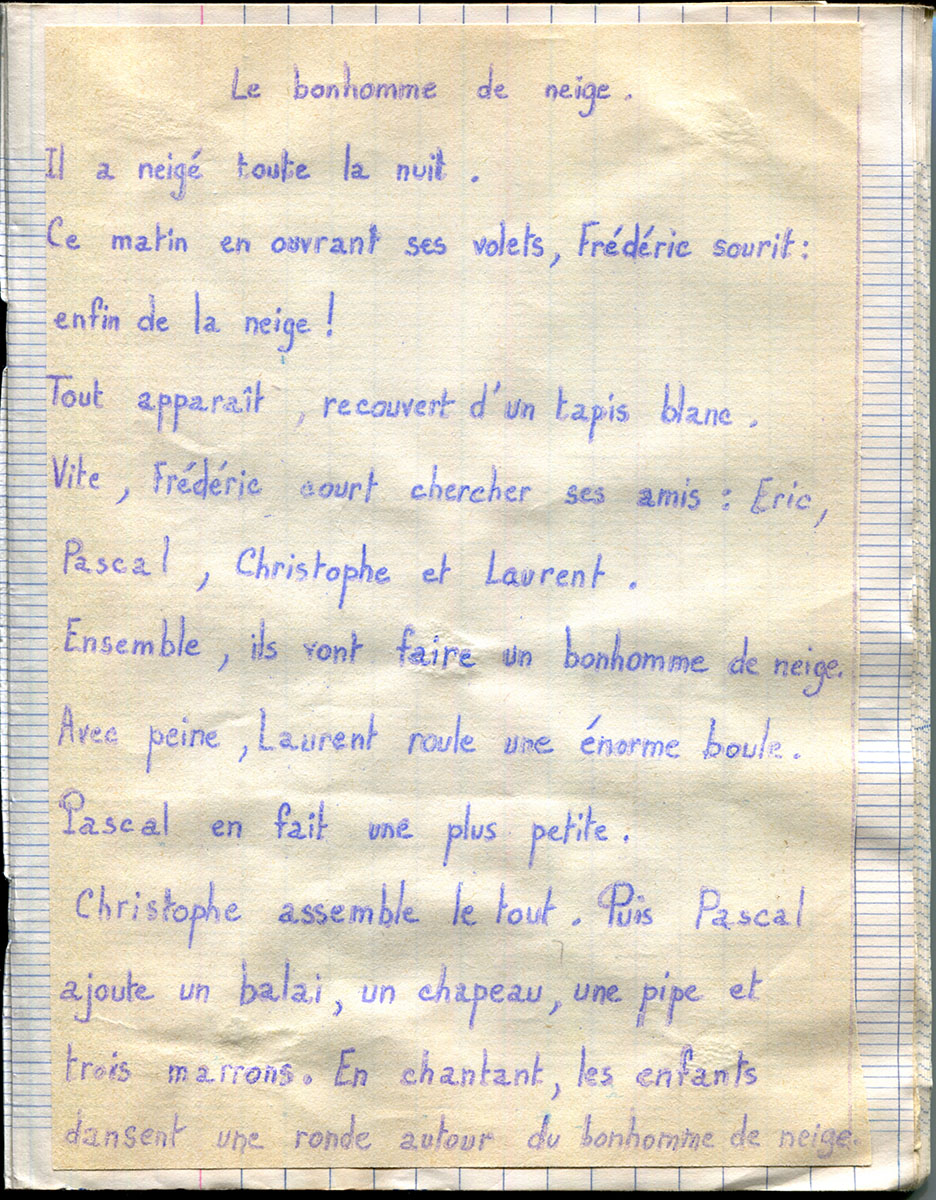 Le bonhomme de neige.
Il a neigé toute la nuit.
Ce matin en ouvrant ses volets, Frédéric sourit:
enfin de la neige!
Tout apparaît, recouvert d'un tapis blanc.
Vite, Frédéric court chercher ses amis: Eric,
Pascal, Christophe et Laurent.
Ensemble, ils vont faire un bonhomme de neige.
Avec peine, Laurent roule une énorme boule.
Pascal en fait une plus petite.
Christophe assemble le tout. Puis Pascal
ajoute un balai, un chapeau, une pipe et
trois marrons. En chantant, les enfants
dansent une ronde autour du bonhomme de neige.